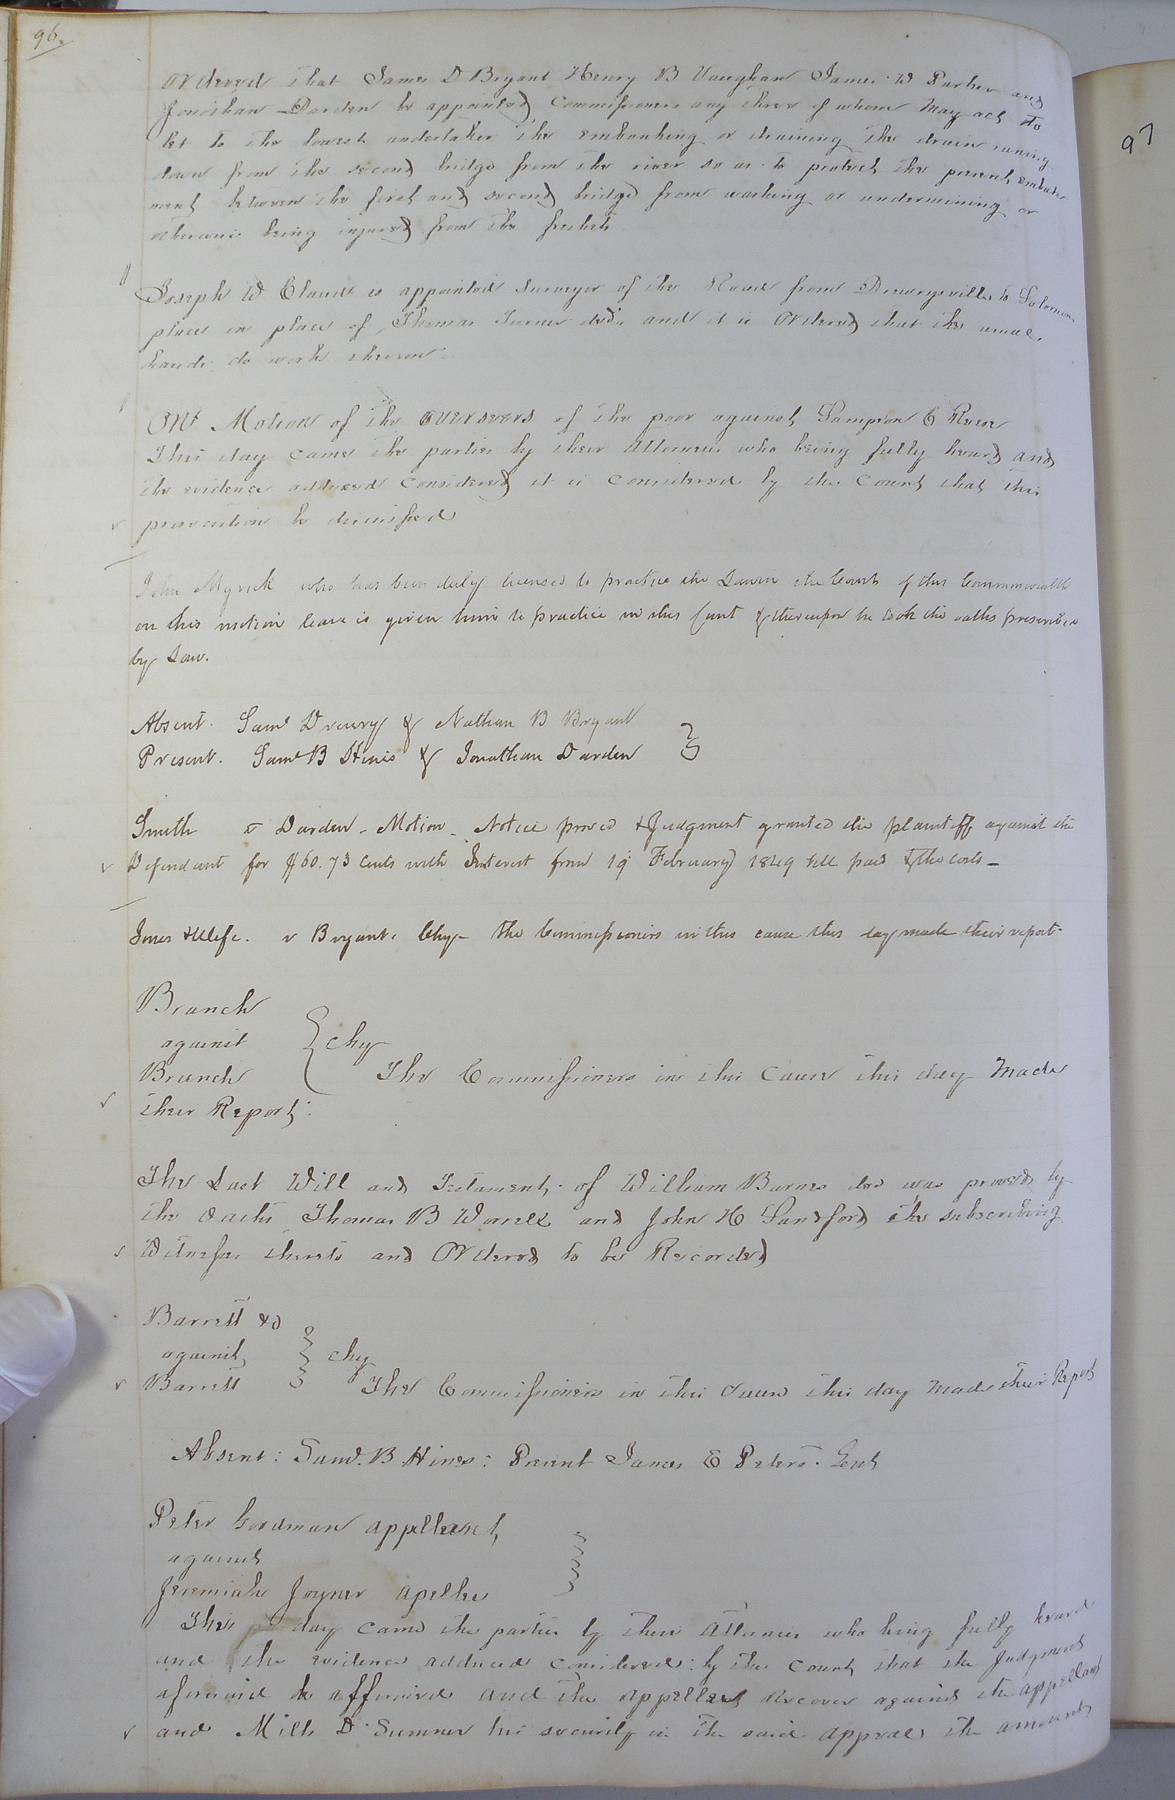 96.
97
Ordered that James D Bryant Henry B Vaughan James W Parker and
Jonathan Darden be appointed Commissioners any three of whom may act to
let to the lowest undertaker the embanking or draining the drain runing
down from the second bridge from the river so as to protect the present embank
ment between the first and second bridge from washing or undermining or
otherwise being injured from the freshets
Joseph W Claud is appointed Surveyor of the Road from Drewrysville to Solomons
place in place of Thomas Turner decd. and it is Ordered that the usual
hands do work thereon.
On Motion of the overseers of the poor against Sampson C Reese
This day came the parties by their Attornies who being fully heard and
the evidence adduced Considered it is Considered by the Court that this
prosecution be dismissed
John Myrick who has been duly licensed to practice the Law in the Courts of this Commonwealth
on his motion leave is given him to practice in this Court & thereupon he took the oaths prescribed
by Law.
Absent. Saml Drewry & Nathan B Bryant
Present. Saml B Hines & Jonathan Darden
Smith v Darden - Motion - Notice proved & Judgment granted the plaintiff against the
Defendant for $60.73 Cents with Interest from 19 February 1849 till paid & the costs -
Jones & Wife. v Bryant. Chy - The Commissioners in this cause this day made their report.
Branch
against } chy
Branch The Commissioners in this Cause this day Made
their Report.
The Last Will and Testament of William Barnes decd was proved by
the oaths Thomas B Worrell and John H Sandford the subscribing
Witnesses thereto and Ordered to be Recorded
Barrett &c
against } chy
Barrett The Commissioners in this Cause this day Made their Report
Absent: Saml. B Hines: Present James E Peters. Gent
Peter Goodman appellant
against
Jeremiah Joyner apellee
This day came the parties by their Attornies who being fully heard
and the evidence adduced considered: by the Court that the Judgment
aforesaid be affirmed and the appellee Recover against the appellant
and Mills D Sumner his security in the said appeal the amount